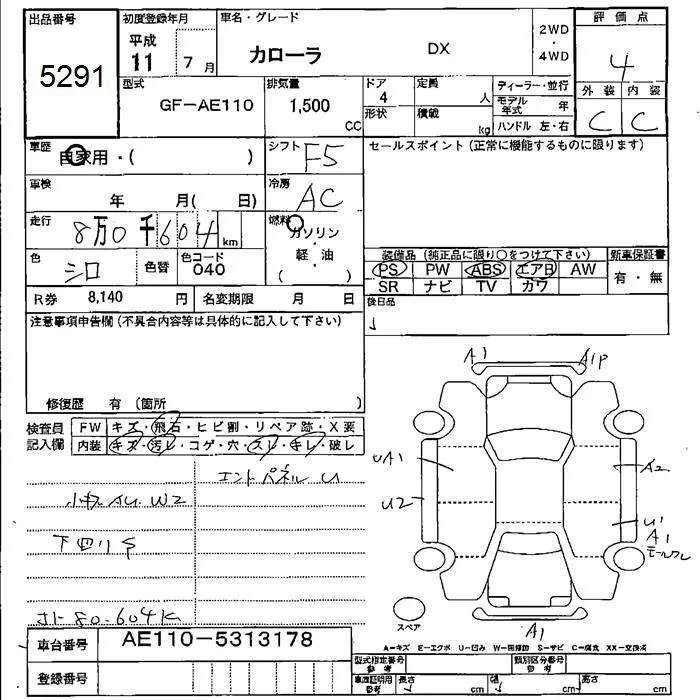 出品番号
5291
初度登録年月
平成
11 7月
車名・グレード
カローラ DX
2WD
・
4WD
評価点
4
外装 内装
C C
型式
GF-AE110
排気量
1,500
CC
ドア
4
形状
定員
人
積載
kg
ディーラー・並行
モデル年式 年
ハンドル 左・右
車歴
自家用・( )
シフト F5
セールスポイント(正常に機能するものに限ります)
車検
年 月( 日)
冷房
AC
走行
8万0千604 km
燃料
ガソリン
・
軽・油
( )
色
シロ
色替
色コード
040
装備品(純正品に限り○をつけて下さい)
PS PW ABS エアB AW
SR ナビ TV カワ
新車保証書
有・無
R券 8,140 円
名変期限 月 日
後日品
注意事項申告欄(不具合内容等は具体的に記入して下さい)
修復歴 有(箇所 )
検査員
記入欄
FW キズ・飛石・ヒビ割・リペア跡・X要
内装 キズ・汚レ・コゲ・穴・スレ・キレ・破レ
エンドパネル U
小キズ AU W2
下回りS
メーター 80.604K
A1
A1P
UA1
U2
A2
U1
A1
モールワレ
A1
スペア
A-キズ E-エクボ U-凹み W-補修跡 S-サビ C-腐食 XX-交換済
車台番号 AE110-5313178
登録番号
型式指定番号
参考
類別区分番号
参考
車庫証明用
参考
長さ cm 幅 cm 高さ cm